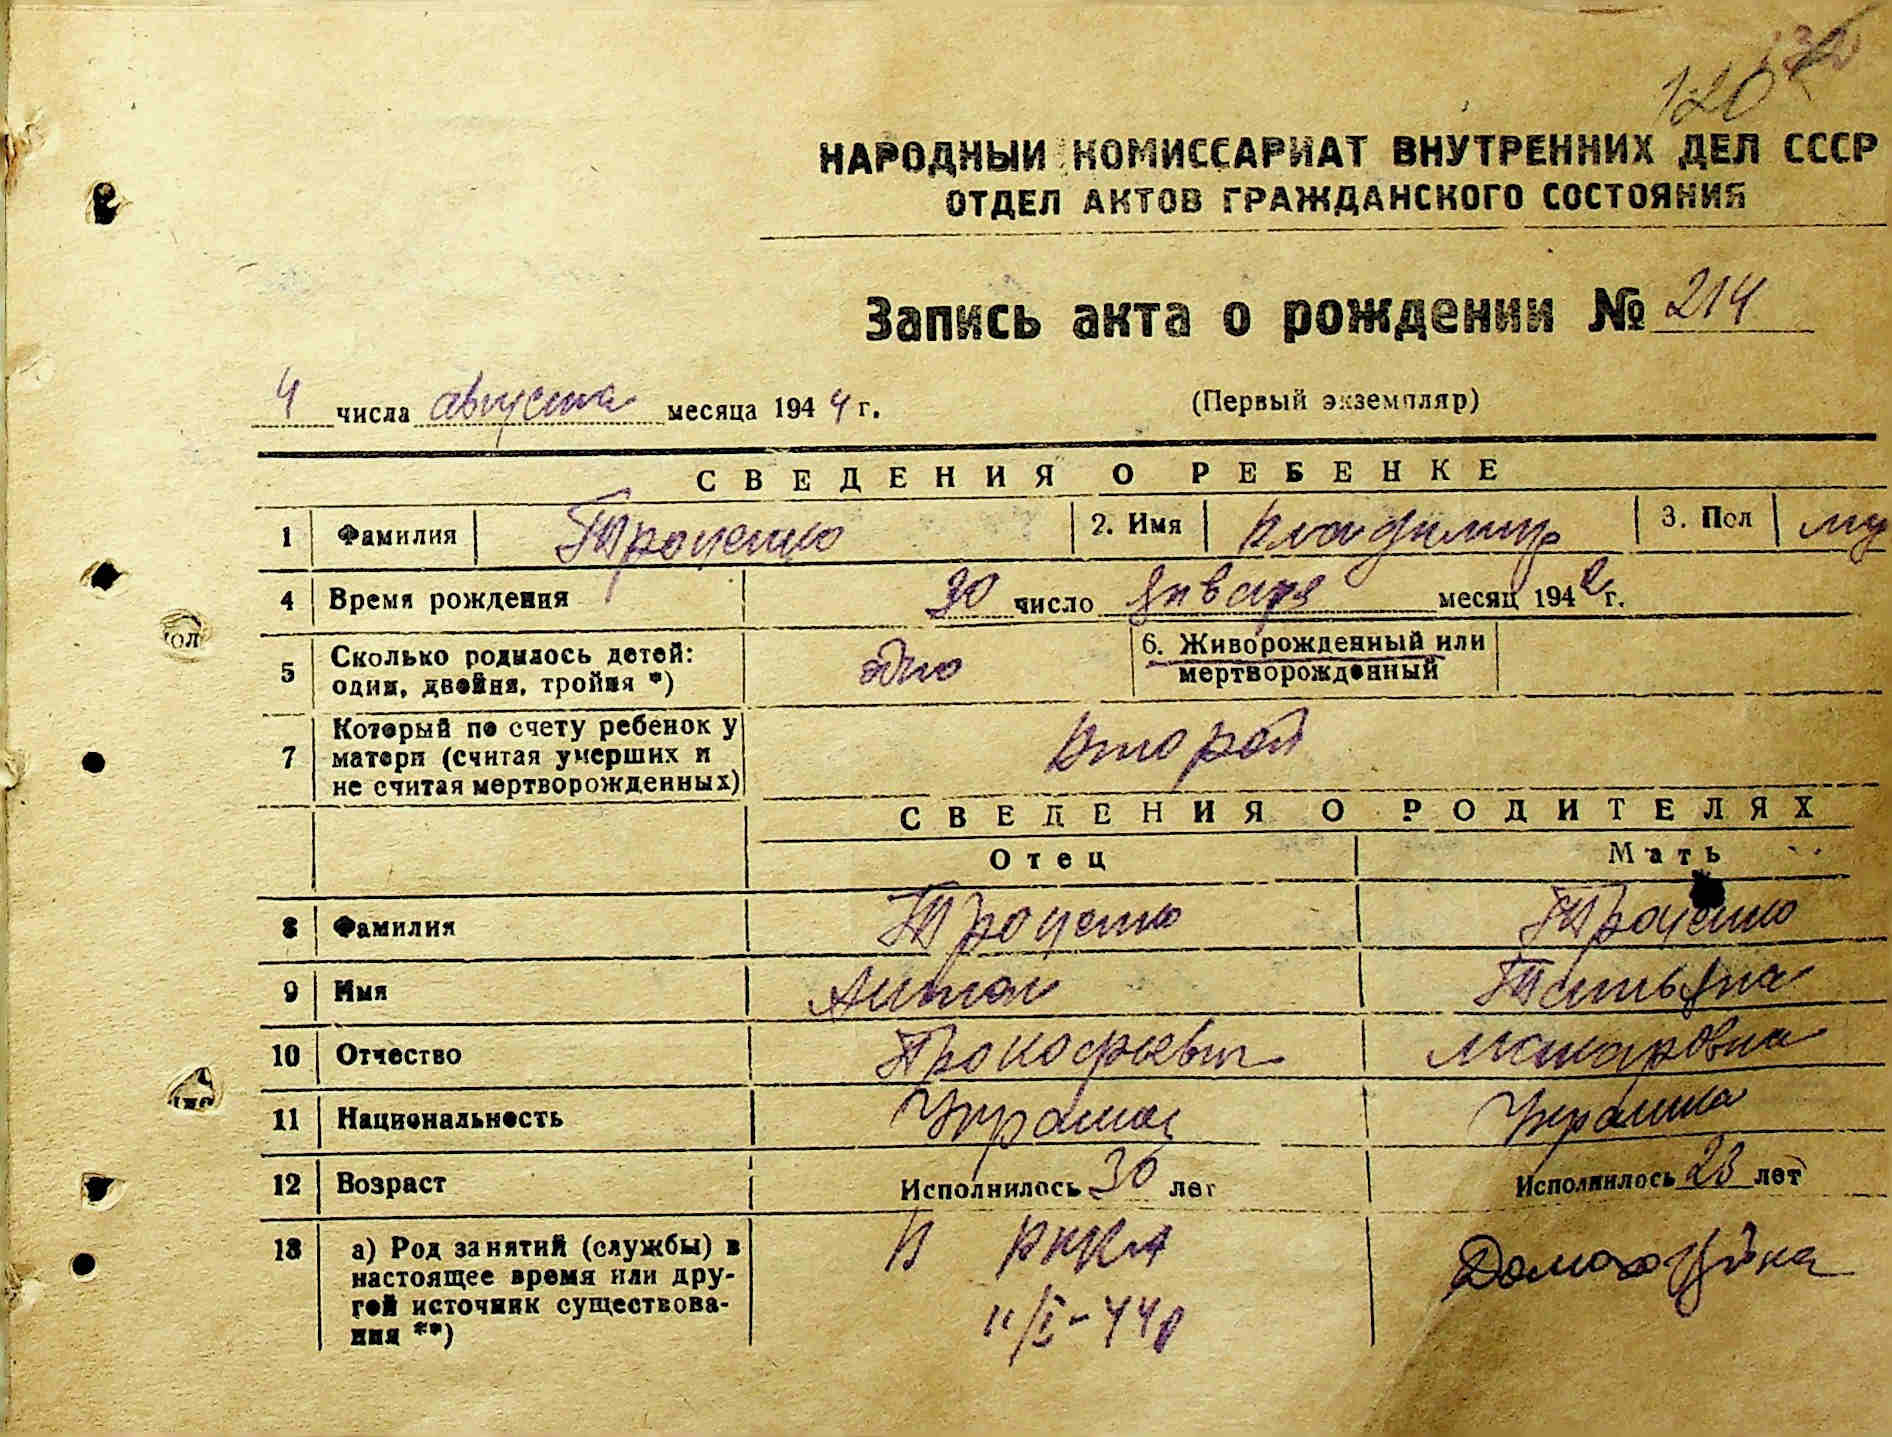 120
НАРОДНЫЙ КОМИССАРИАТ ВНУТРЕННИХ ДЕЛ СССР
ОТДЕЛ АКТОВ ГРАЖДАНСКОГО СОСТОЯНИЯ
Запись акта о рождении № 214
4 числа августа месяца 1944 г. (Первый экземпляр)
СВЕДЕНИЯ О РЕБЕНКЕ
1 Фамилия Троценко 2. Имя Владимир 3. Пол му
4 Время рождения 30 число января месяц 1942 г.
5 Сколько родилось детей: одно 6. Живорожденный или
один, двойня, тройня *) мертворожденный
Который по счету ребенок у
7 матери (считая умерших и Второй
не считая мертворожденных)
СВЕДЕНИЯ О РОДИТЕЛЯХ
Отец Мать
8 Фамилия Троценко Троценко
9 Имя Антон Татьяна
10 Отчество Прокофьевич Макаровна
11 Национальность Украинец Украинка
12 Возраст Исполнилось 30 лет Исполнилось 23 лет
13 а) Род занятий (службы) в В РККА Домохозяйка
настоящее время или дру-
гой источник существова-
ния **)